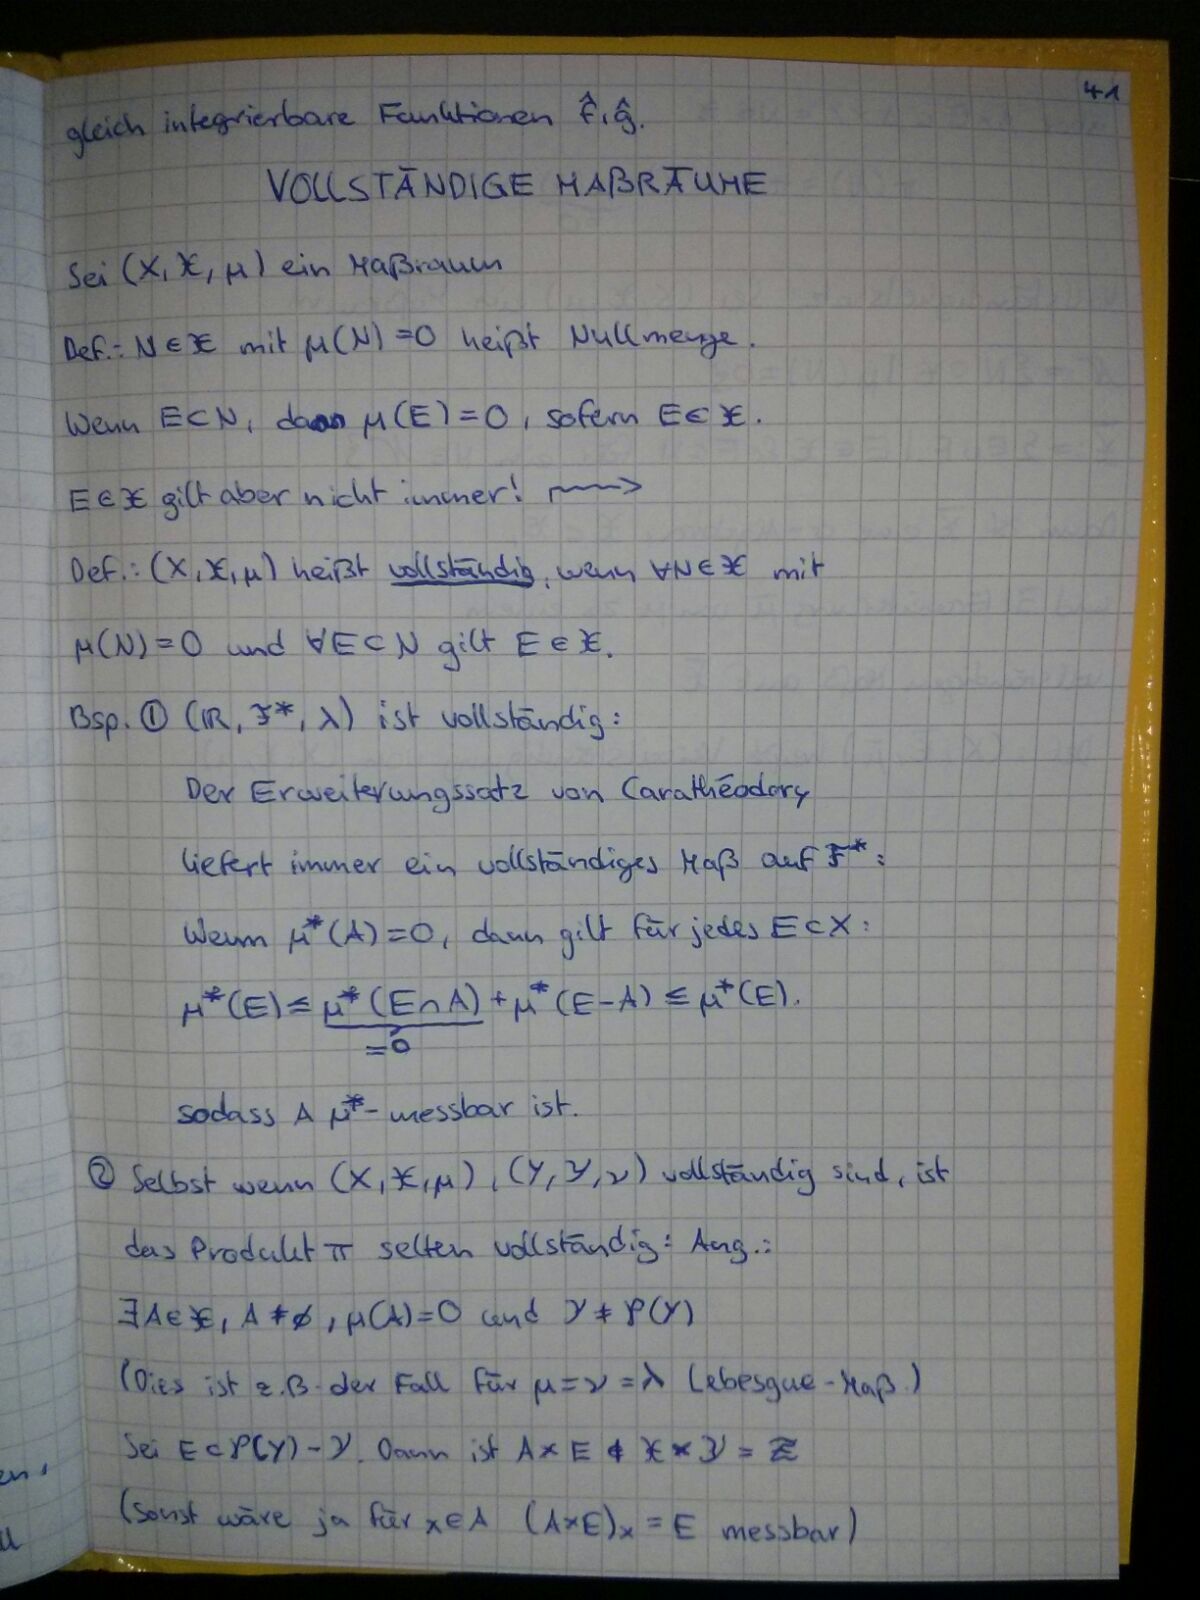 41
gleich integrierbare Funktionen f̂, ĝ.
VOLLSTÄNDIGE MAßRÄUME
Sei (X, 𝔛, μ) ein Maßraum
Def.: N ∈ 𝔛 mit μ(N) = 0 heißt Nullmenge.
Wenn E ⊂ N, dann μ(E) = 0, sofern E ∈ 𝔛.
E ∈ 𝔛 gilt aber nicht immer! ⟿
Def.: (X, 𝔛, μ) heißt vollständig, wenn ∀N ∈ 𝔛 mit
μ(N) = 0 und ∀E ⊂ N gilt E ∈ 𝔛.
Bsp. ① (ℝ, 𝓕*, λ) ist vollständig:
Der Erweiterungssatz von Carathéodory
liefert immer ein vollständiges Maß auf 𝓕*:
Wenn μ*(A) = 0, dann gilt für jedes E ⊂ X:
μ*(E) ≤ μ*(E∩A) + μ*(E-A) ≤ μ*(E).
=0
sodass A μ*-messbar ist.
② Selbst wenn (X, 𝔛, μ), (Y, 𝒴, ν) vollständig sind, ist
das Produkt π selten vollständig: Ang.:
∃A ∈ 𝔛, A ≠ ∅, μ(A) = 0 und 𝒴 ≠ 𝒫(Y)
(Dies ist z.B. der Fall für μ = ν = λ Lebesgue-Maß.)
Sei E ⊂ 𝒫(Y) - 𝒴. Dann ist A × E ∉ 𝔛 × 𝒴 = 𝒵
(Sonst wäre ja für x ∈ A (A×E)ₓ = E messbar)
en,